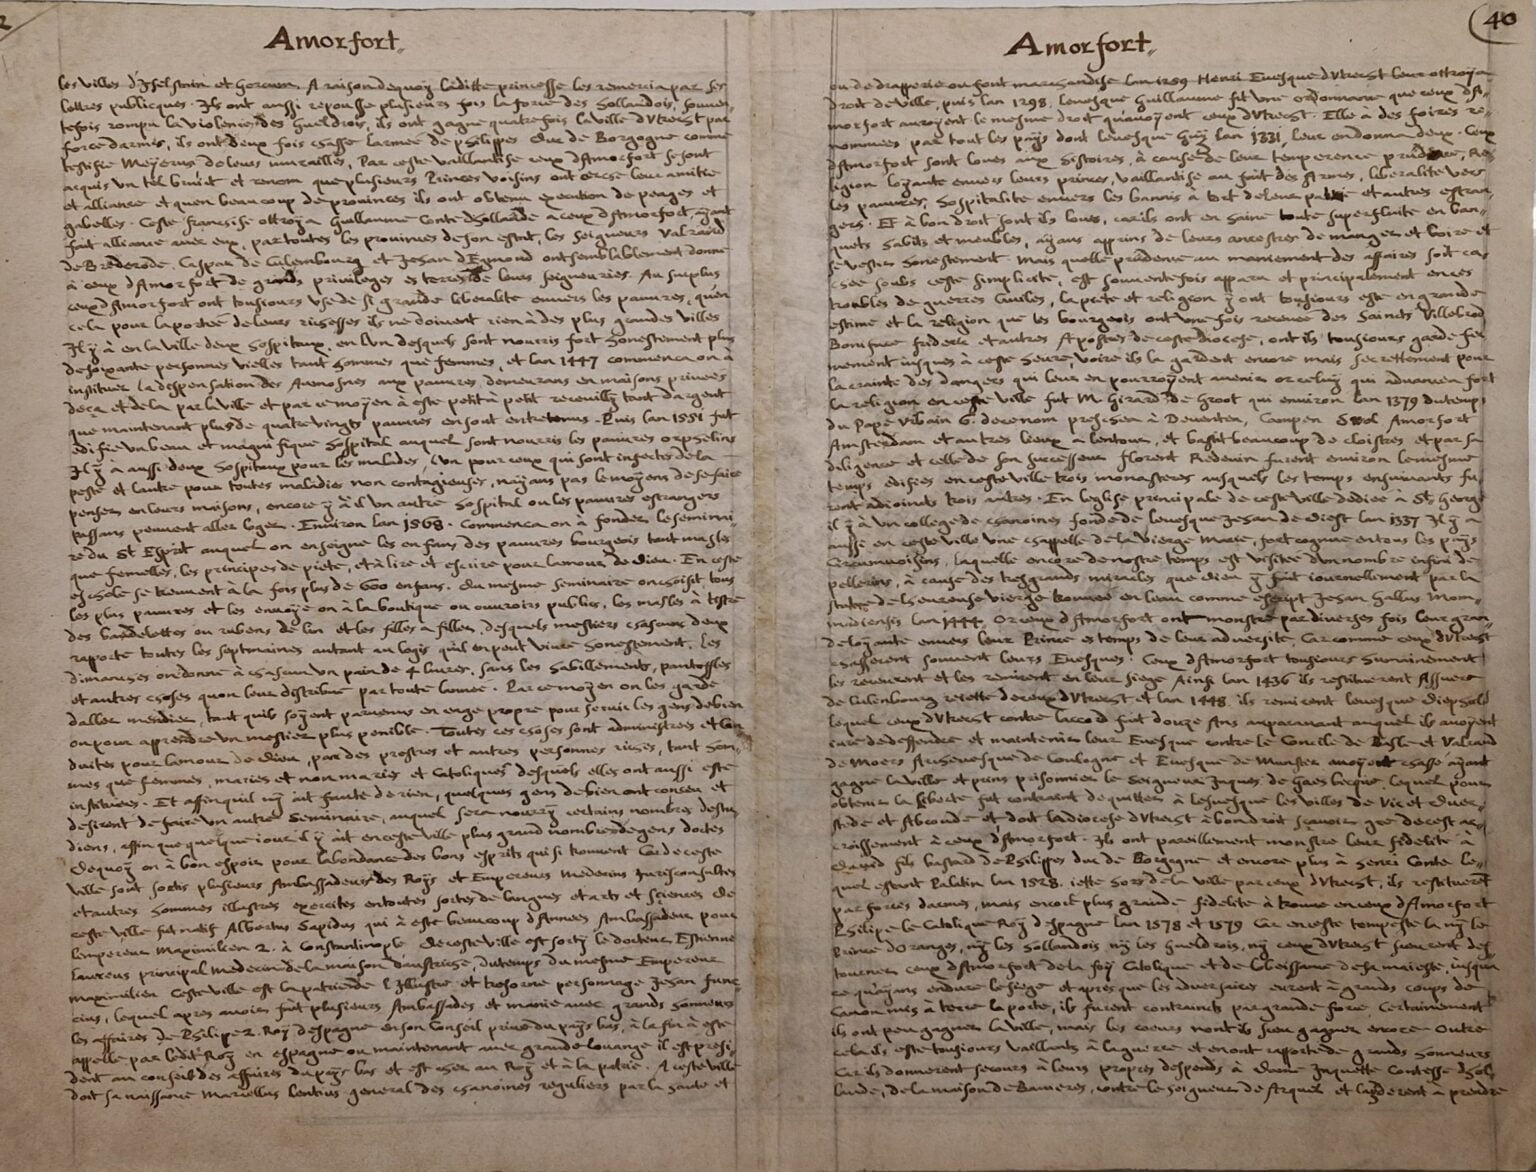 2
Amorfort.
les villes d'Iselstein et Gorcum. A raison dequoy laditte princesse les remercia par ses
lettres publicques. Ils ont aussi repousse plusieurs fois la force des Hollandois, souven-
tefois rompu la violence des Gueldrois, ils ont gagne quatre fois la ville d'Vtrecht par
force darmes, ils ont deux fois chasse larmee de Philippes Duc de Borgogne comme
testifie Meyerus de leurs murailles, Par ceste vaillantise ceux d'Amorfort se sont
acquis un tel bruict et renom que plusieurs Princes voisins ont cerche leur amitie
et alliance et quen beaucoup de provinces ils ont obtenu exention de peages et
gabelles. Ceste franchise ottroya Guillaume Conte d'Hollande a ceux d'Amorfort, ayant
fait alliance avec eux, par toutes les provinces de son estat, les seigneurs Valrand
de Brederode, Caspar de Culembourg et Jehan d'Egmond ont semblablement donne
à ceux d'Amorfort de grands privileges es terres de leurs seigneuries. Au surplus
ceux d'Amorfort ont tousiours use de si grande liberalite envers les pauvres, quen
cela pour la portee de leurs richesses ils ne doivent rien à des plus grandes villes
Il y à en la ville deux hospitaux, en lun desquels sont nourris fort honestement plus
de soixante personnes vielles tant hommes que femmes, et lan 1447 commença on à
instituer la dispensation des Aumosnes aux pauvres demeurans en maisons privees
deça et dela par la ville et par ce moyen à este petit à petit recueilly tant dargent
que maintenant plus de quatre vingts pauvres en sont entretenus. Puis lan 1551 fut
edifie un beau et magnifique hospital auquel sont nourris les pauvres orphelins
Il y a aussi deux hospitaux pour les malades, lun pour ceux qui sont infectes de la
peste et lautre pour toutes maladies non contagieuses, nayans pas le moyens de se faire
penser en leurs maisons, encore y à il un autre hospital ou les pauvres estrangers
passans peuvent aller loger. Environ lan 1568. commença on à fonder le semini-
re du St Esprit auquel on enseigne les enfans des pauvres bourgeois tant masles
que femelles, les principes de piete, et à lire et escrire pour lamour de Dieu. En ceste
eschole se treuvent à la fois plus de 600 enfans. Du mesme seminaire on choisit tous
les plus pauvres et les envoye on à la boutique ou ouvroirs publics, les masles à tistre
des bandelottes ou rubens de lin et les filles a filler, desquels mestiers chascun deux
rapporte toutes les septmaines autant au logis quil en peut vivre honestement. Les
dimanches on donne à chascun un pain de 4 livres, sans les habillements, pantoffles
et autres choses quon leur distribue par toute lannee. Par ce moyen on les garde
daller mendier, tant quils soyent parvenus en eage propre pour servir les gens de bien
ou pour apprendre un mestier plus penible. Toutes ces choses sont administrees et con-
duites pour lamour de Dieu, par des prestres et autres personnes riches, tant hom-
mes que femmes, maries et non maries et Catoliques desquels elles ont aussi este
instituees. Et affin quil ny ait faute de rien, quelques gens de bien ont conceu et
desirent de faire un autre Seminaire, auquel sera nourry certains nombre destu-
diens, affin que quelque iour il y ait en ceste ville plus grand nombres de gens doctes
Dequoy on à bon espoir pour labondance des bons esprits qui si trouvent Car de ceste
ville sont sortis plusieurs Ambassadeurs des Roys et Empereurs Medecins Jurisconsultes
et autres hommes illustres exercites en toutes sortes de langues et arts et sciences De
ceste ville fut natif Albertus Sapidus qui à este beaucoup d'Annees Ambassadeur pour
lempereur Maximilien 2. à Constantinople De ceste ville est sorty le docteur Estienne
Laureus principal Medecin de la maison daustriche, du temps du mesme Empereur
Maximilien Ceste ville est la patrie de lIllustre et tresorne personnage Jehan func-
cius, lequel apres avoir fait plusieurs Ambassades et manie avec grands honneurs
les affaires de Philippe 2. Roy despagne en son Conseil prive du pays bas, à la fin à este
appelle par ledit Roy en espagne ou maintenant avec grande louange il est presi-
dent au conseil des affaires du pays bas et est cher au Roy et à la patrie. A ceste ville
doit sa naissance Marcellus Lentius general des chanoines reguliers par la haute et
40
Amorfort.
ou de drapperie ou font marchandise lan 1259 Henri Evesque d'Vtrecht leur ottroya
droit de ville, puis lan 1298. levesque Guillaume fit une ordonnance que ceux d'A-
morfort auroyent le mesme droit quavoyent ceux d'Vtrecht. Elle à des foires re-
nommees par tout les pays dont levesque Guy lan 1331, leur en donna deux. Ceux
d'Amorfort sont loues aux histoires, à cause de leur temperence prudence, Re-
ligion loyaute envers leurs princes, vaillantise au fait des Armes, liberalite vers
les pauvres, hospitalite envers les bannis à tort de leur patrie et autres estran-
gers. Et à bon droit sont ils loues, car ils ont en haine toute superfluite en ban-
quets habits et meubles, ayans apprins de leurs ancestres de manger et boire et
se vestir honestement. Mais quelle prudence au maniement des affaires soit ca-
chee soubs ceste simplicite, est souventefois apparu et principalement en ces
troubles de guerres Civiles, la piete et religion y ont tousiours este en grande
estime et la religion que les bourgeois ont une fois receue des Saincts Villebrod
Boniface frideric et autres Apostres de ceste diocese, ont ils tousiours garde fer-
mement iusques à ceste heure, voire ils la gardent encore mais secrettement pour
la crainte des dangers qui leur en pourroyent avenir or celuy qui advança fort
la religion en ceste ville fut M. Girard de Groot qui environ lan 1379 du temps
du Pape Vrbain 6. de ce nom prescha à Deventer, Campen Swol Amorfort
Amsterdam et autres lieux a lentour, et bastit beaucoup de cloistres et par sa
deligence et celle de son successeur Florent Redevin furent environ le mesme
temps edifies en ceste ville trois monasteres ausquels les temps ensuivants fu-
rent adjoints trois autres. En leglise principale de ceste ville dediee à St. George
il y à un college de chanoines fonde de levesque Jehan de Diest lan 1337 Il y a
aussi en ceste ville une chappelle de la Vierge Marie, fort cognue en tous les pays
Circunvoisins, laquelle encore de nostre temps est visitee d'un nombre infini de
pellerins, à cause des tresgrands miracles que Dieu y fait iournellement par la
statue de lheureuse vierge trouvee en leau comme escript Jehan Gallus Mom-
indiensis lan 1444. Or ceux d'Amorfort ont monstre par diverses fois leur gran-
de loyaute envers leur Prince es temps de leur adversite, Car comme ceux d'Vtrecht
chasserent souvent leurs Evesques. Ceux d'Amorfort tousiours humainement
les receurent et les remirent en leur siege Ainsi lan 1436 ils restituerent Assuere
de Culenbourg reiette de ceux d'Vtrecht et lan 1448. ils remirent levesque Diephold
lequel ceux d'Vtrecht contre laccord fait douze Ans auparavant auquel ils avoyent
iure de deffendre et maintenir leur Evesque contre le Concile de Basle et Valrand
de Moers Archevesque de Coulogne et Evesque de Munster avoyent chasse ayant
gagne la ville et prins prisonnier le Seigneur Jaques de Gaesbecque, lequel pour
obtenir la liberte fut contraint de quitter à levesque les villes de Vic et Duer-
stede et Abcoude et dont la diocese d'Vtrecht à bon droit sçavoir gre de cest ac-
croissement à ceux d'Amorfort. Ils ont pareillement monstre leur fidelite à
David fils bastard de Philippes duc de Borgogne et encore plus à Henri Conte le-
quel estant Palatin lan 1528. iette hors de la ville par ceux d'Vtrecht, ils restituerent
par forces darmes, mais encore plus grande fidelite à trouve en ceux d'Amorfort
Philipe le Catolique Roy d'Espagne lan 1578 et 1579 Car en ceste tempeste la ny le
Prince d'Oranges, ny les Hollandois ny les Gueldrois, ny ceux d'Vtrecht sceurent des-
tourner ceux d'Amorfort de la foy Catolique et de lobeissance de sa maieste, iusqua
ce quayans endure le siege et apres que les adversaires eurent à grands coups de
Canon mis à terre la porte, ils furent contraints par grande force, Certainement
ils ont peu gagner la ville, mais les coeurs nont ils sceu gagner encore Outre
cela ils este tousiours vaillants à la guerre et en ont rapporte de grands honneurs
Car ils donnerent secours à leurs propres despends à Dame Jaquette Contesse d'Hol-
lande, de la maison de Bavieres, contre le Seigneur de Arquel et laiderent à prendre